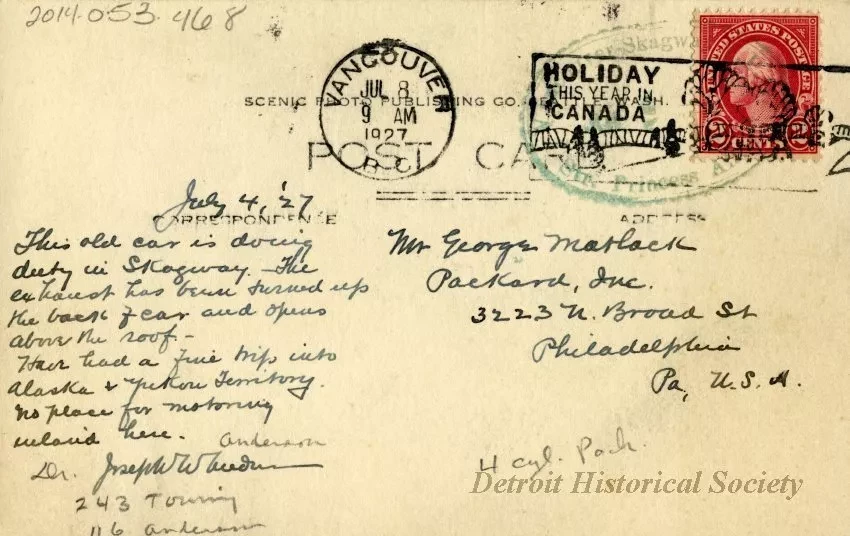 2014.053.468
VANCOUVER
JUL 8
9 AM
1927
B.C.
HOLIDAY
THIS YEAR IN
CANADA
Skagway
Str. Princess A
UNITED STATES POSTAGE
2 CENTS 2
SCENIC PHOTO PUBLISHING CO. SEATTLE, WASH.
POST CARD
July 4, '27
CORRESPONDENCE
ADDRESS
This old car is doing
duty in Skagway. The
exhaust has been turned up
the back of car and opens
above the roof.-
Have had a fine trip into
Alaska & Yukon Territory.
No place for motoring
inland here.
Anderson
Dr. Joseph W
243 Touring
116 Anderson
Mr George Matlack
Packard, Inc.
3223 N. Broad St
Philadelphia
Pa, U.S.A.
4 cyl. Pack.
Detroit Historical Society